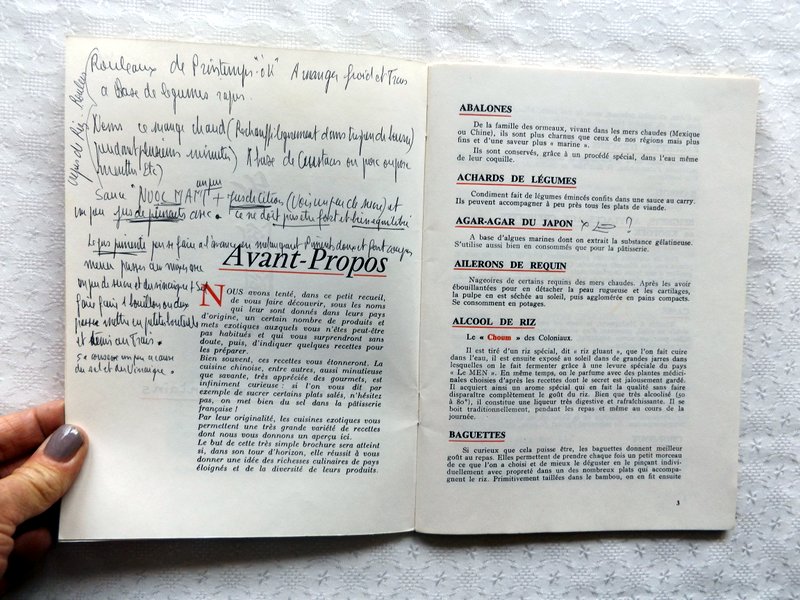 Rouleaux de Printemps "ok" A manger froid et Trais
a Base de legumes rapes.
Nems ce mange chaud (Rechauff legnement dans un peu de beurre)
pendant plusieurs minutes) A base de Crustaces ou porc ou poule
un peu
Sauce "NUOC MAM" + jus de Citron (Voir un peu de sucre) et
un peu jus de piments avec. ce ne doit pas être fort et bien equilibré
Le jus pimenté peu se faire a l'avance en melangeant Piments doux et fort
un peu de sucre et du vinaigre et Sel
faire 1 bouillon ou deux
mettre en petite bouteille
et tenir au frais.
se conserve un peu a cause
du sel et du Vinaigre.
Avant-Propos
NOUS avons tenté, dans ce petit recueil,
de vous faire découvrir, sous les noms
qui leur sont donnés dans leurs pays
d'origine, un certain nombre de produits et
mets exotiques auxquels vous n'êtes peut-être
pas habitués et qui vous surprendront sans
doute, puis, d'indiquer quelques recettes pour
les préparer.
Bien souvent, ces recettes vous étonneront. La
cuisine chinoise, entre autres, aussi minutieuse
que savante, très appréciée des gourmets, est
infiniment curieuse : si l'on vous dit par
exemple de sucrer certains plats salés, n'hésitez
pas, on met bien du sel dans la pâtisserie
française !
Par leur originalité, les cuisines exotiques vous
permettent une très grande variété de recettes
dont nous vous donnons un aperçu ici.
Le but de cette très simple brochure sera atteint
si, dans son tour d'horizon, elle réussit à vous
donner une idée des richesses culinaires de pays
éloignés et de la diversité de leurs produits.
ABALONES
De la famille des ormeaux, vivant dans les mers chaudes (Mexique
ou Chine), ils sont plus charnus que ceux de nos régions mais plus
fins et d'une saveur plus « marine ».
Ils sont conservés, grâce à un procédé spécial, dans l'eau même
de leur coquille.
ACHARDS DE LÉGUMES
Condiment fait de légumes émincés confits dans une sauce au carry.
Ils peuvent accompagner à peu près tous les plats de viande.
AGAR-AGAR DU JAPON ?
A base d'algues marines dont on extrait la substance gélatineuse.
S'utilise aussi bien en consommés que pour la pâtisserie.
AILERONS DE REQUIN
Nageoires de certains requins des mers chaudes. Après les avoir
ébouillantées pour en détacher la peau rugueuse et les cartilages,
la pulpe en est séchée au soleil, puis agglomérée en pains compacts.
Se consomment en potages.
ALCOOL DE RIZ
Le « Choum » des Coloniaux.
Il est tiré d'un riz spécial, dit « riz gluant », que l'on fait cuire
dans l'eau, il est ensuite exposé au soleil dans de grandes jarres dans
lesquelles on le fait fermenter grâce à une levure spéciale du pays
« Le MEN ». En même temps, on le parfume avec des plantes médici-
nales choisies d'après les recettes dont le secret est jalousement gardé.
Il acquiert ainsi un arome spécial qui en fait la qualité sans faire
disparaître complètement le goût du riz. Bien que très alcoolisé (50
à 80°), il constitue une liqueur très digestive et rafraîchissante. Il se
boit traditionnellement, pendant les repas et même au cours de la
journée.
BAGUETTES
Si curieux que cela puisse être, les baguettes donnent meilleur
goût au repas. Elles permettent de prendre chaque fois un petit morceau
de ce que l'on a choisi et de mieux le déguster en le pinçant indivi-
duellement avec propreté dans un des nombreux plats qui accompa-
gnent le riz. Primitivement taillées dans le bambou, on en fit ensuite
3